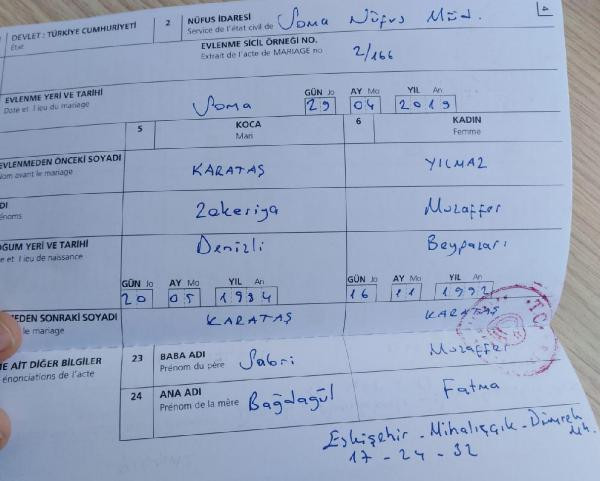 DEVLET : TÜRKİYE CUMHURİYETİ
État
2
NÜFUS İDARESİ
Service de l'état civil de
Soma Nüfus Müd.
EVLENME SİCİL ÖRNEĞİ NO.
Extrait de l'acte de MARIAGE no
2/166
EVLENME YERİ VE TARİHİ
Date et lieu du mariage
Soma
GÜN Jo AY Mo YIL An
29 04 2019
5 KOCA
Mari
6 KADIN
Femme
EVLENMEDEN ÖNCEKİ SOYADI
Nom avant le mariage
KARATAŞ
YILMAZ
DI
énoms
Zekeriya
Muzaffer
OĞUM YERİ VE TARİHİ
te et lieu de naissance
Denizli
Beypazarı
GÜN Jo AY Mo YIL An
20 05 1984
GÜN Jo AY Mo YIL An
16 11 1992
MEDEN SONRAKİ SOYADI
le mariage
KARATAŞ
KARATAŞ
T.C.
E AİT DİĞER BİLGİLER
énonciations de l'acte
23 BABA ADI
Prénom du père
Sabri
Muzaffer
24 ANA ADI
Prénom de la mère
Bağdagül
Fatma
Eskişehir - Mihalıççık - Dümrek
Mh.
17 - 24 - 32